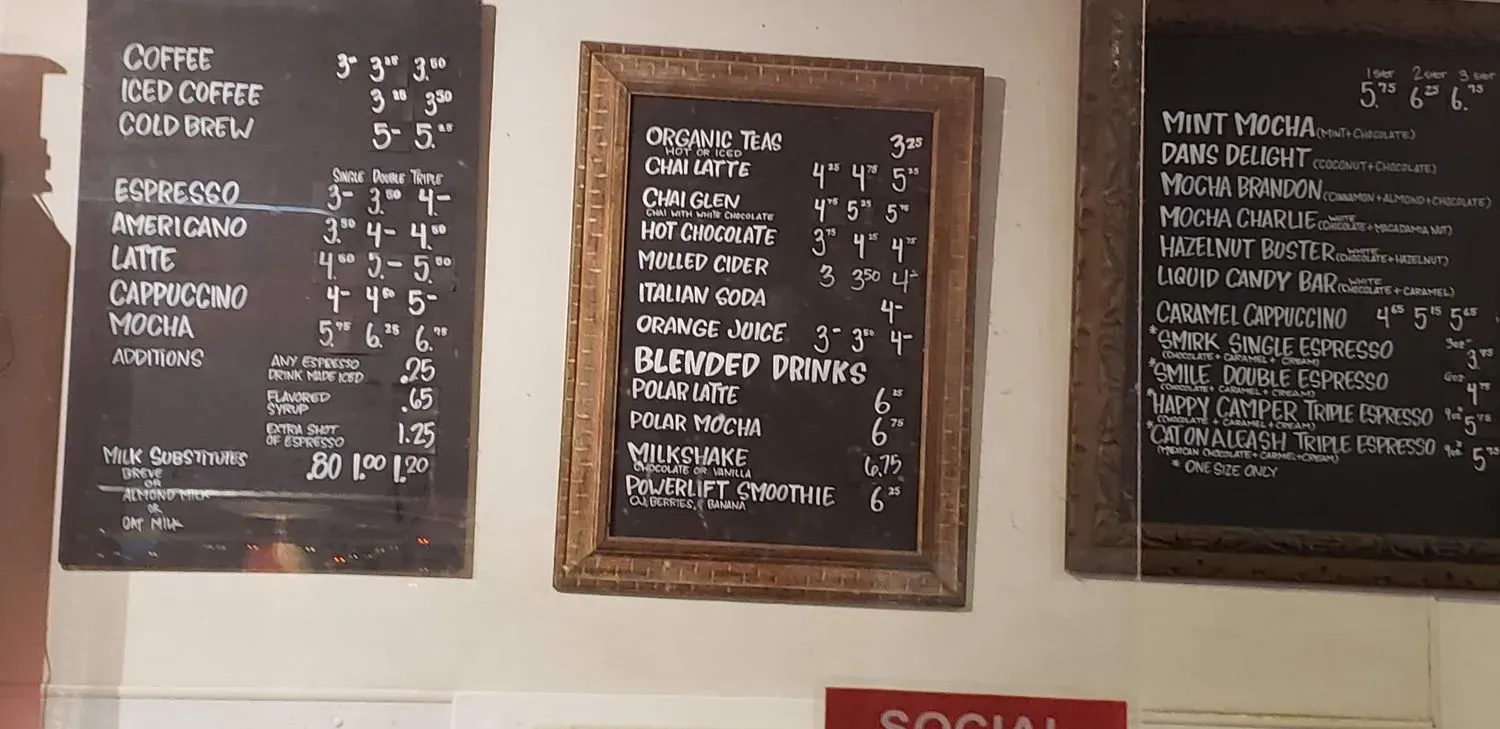 COFFEE 3- 3.25 3.50
ICED COFFEE 3.25 3.50
COLD BREW 5- 5.25
SINGLE DOUBLE TRIPLE
ESPRESSO 3- 3.50 4-
AMERICANO 3.50 4- 4.50
LATTE 4.50 5.- 5.50
CAPPUCCINO 4- 4.50 5-
MOCHA 5.75 6.25 6.75
ADDITIONS
ANY ESPRESSO
DRINK MADE ICED .25
FLAVORED
SYRUP .65
EXTRA SHOT
OF ESPRESSO 1.25
MILK SUBSTITUTES .80 1.00 1.20
BREVE
OR
ALMOND MILK
OR
OAT MILK
ORGANIC TEAS 3.25
HOT OR ICED
CHAI LATTE 4.25 4.75 5.25
CHAI GLEN 4.75 5.25 5.75
CHAI WITH WHITE CHOCOLATE
HOT CHOCOLATE 3.75 4.25 4.75
MULLED CIDER 3 3.50 4-
ITALIAN SODA 4-
ORANGE JUICE 3- 3.50 4-
BLENDED DRINKS
POLAR LATTE 6.25
POLAR MOCHA 6.75
MILKSHAKE 6.75
CHOCOLATE OR VANILLA
POWERLIFT SMOOTHIE 6.25
OJ, BERRIES, BANANA
1 SHOT 2 SHOT 3 SHOT
5.75 6.25 6.75
MINT MOCHA (MINT + CHOCOLATE)
DANS DELIGHT (COCONUT + CHOCOLATE)
MOCHA BRANDON (CINNAMON + ALMOND + CHOCOLATE)
MOCHA CHARLIE (WHITE CHOCOLATE + MACADAMIA NUT)
HAZELNUT BUSTER (WHITE CHOCOLATE + HAZELNUT)
LIQUID CANDY BAR (WHITE CHOCOLATE + CARAMEL)
CARAMEL CAPPUCCINO 4.65 5.15 5.65
*SMIRK SINGLE ESPRESSO 3oz 3.75
(CHOCOLATE + CARAMEL + CREAM)
*SMILE DOUBLE ESPRESSO 6oz 4.75
(CHOCOLATE + CARAMEL + CREAM)
*HAPPY CAMPER TRIPLE ESPRESSO 9oz 5.75
(CHOCOLATE + CARAMEL + CREAM)
*CAT ON A LEASH TRIPLE ESPRESSO 9oz 5
(MEXICAN CHOCOLATE + CARMEL + CREAM)
* ONE SIZE ONLY
SOCIAL